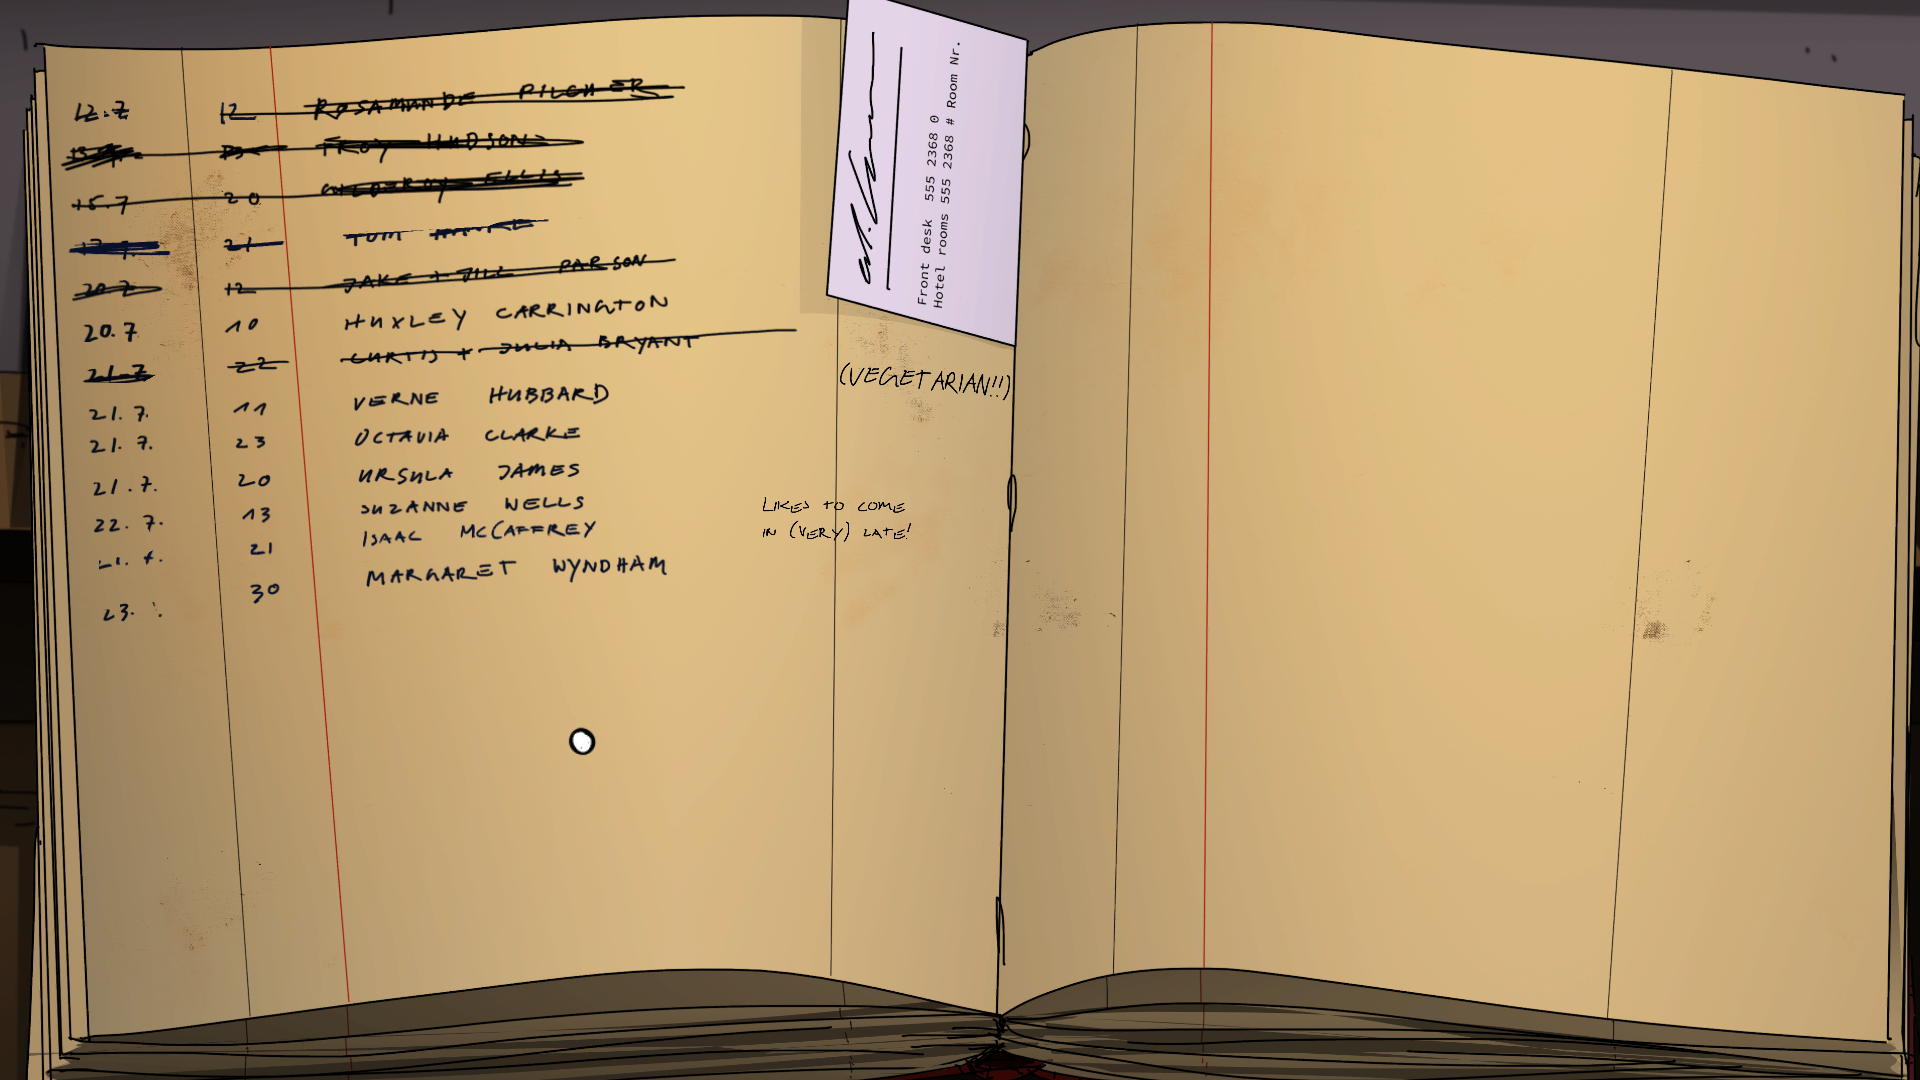 12.7 12 ROSAMUNDE PILCHER
TROY HUDSON
15.7 20 GILDEROY ELLIS
21 TOM
20.7 12 JAKE + JILL PARSON
20.7 10 HUXLEY CARRINGTON
21.7 22 CURTIS + JULIA BRYANT
21.7. 11 VERNE HUBBARD (VEGETARIAN!!)
21.7. 23 OCTAVIA CLARKE
21.7. 20 URSULA JAMES
22.7. 13 SUZANNE WELLS LIKES TO COME
IN (VERY) LATE!
21 ISAAC MCCAFFREY
23. 30 MARGARET WYNDHAM
Front desk 555 2368 0
Hotel rooms 555 2368 # Room Nr.